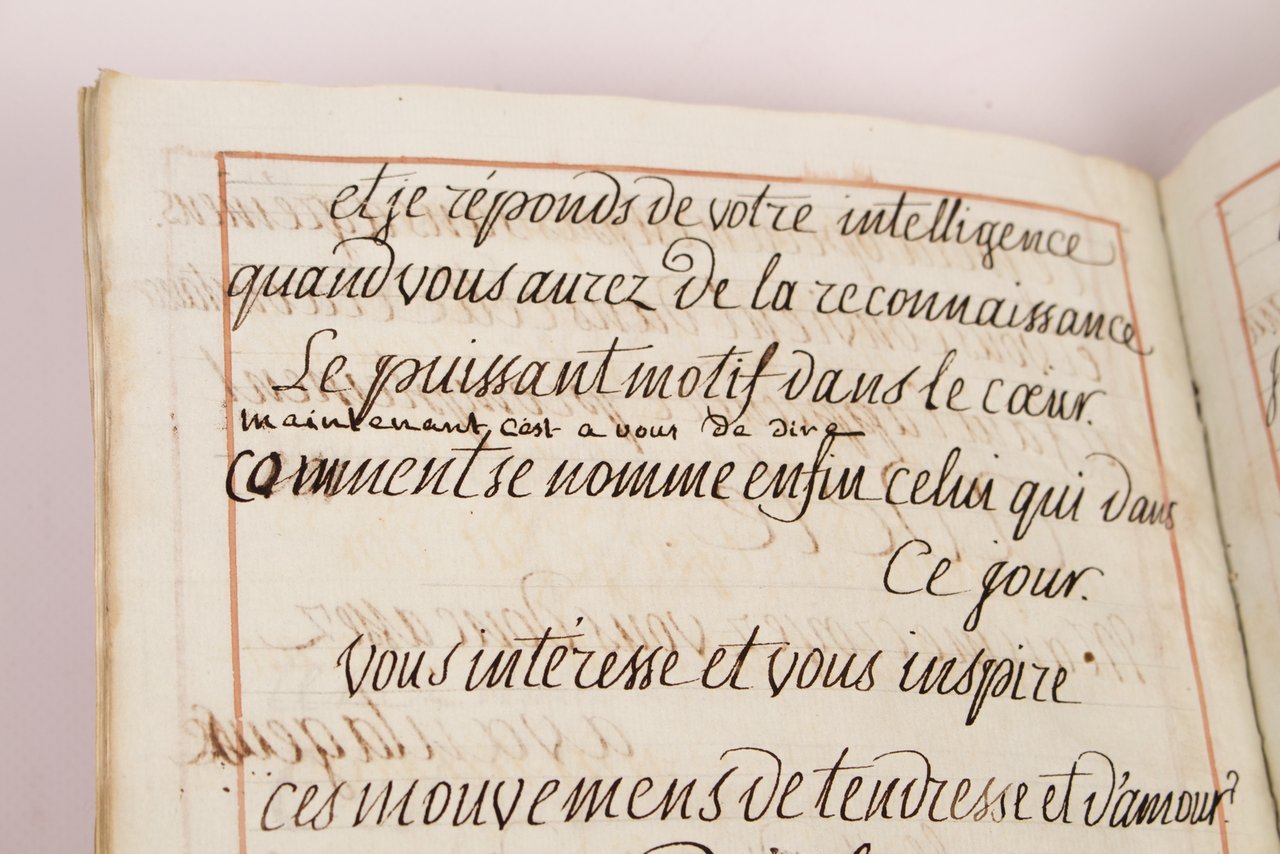 et je réponds de votre intelligence
quand vous aurez de la reconnaissance
Le puissant motif dans le cœur.
maintenant, c'est a vous de dire
comment se nomme enfin celui qui dans
Ce jour.
vous intéresse et vous inspire
ces mouvemens de tendresse et d'amour?